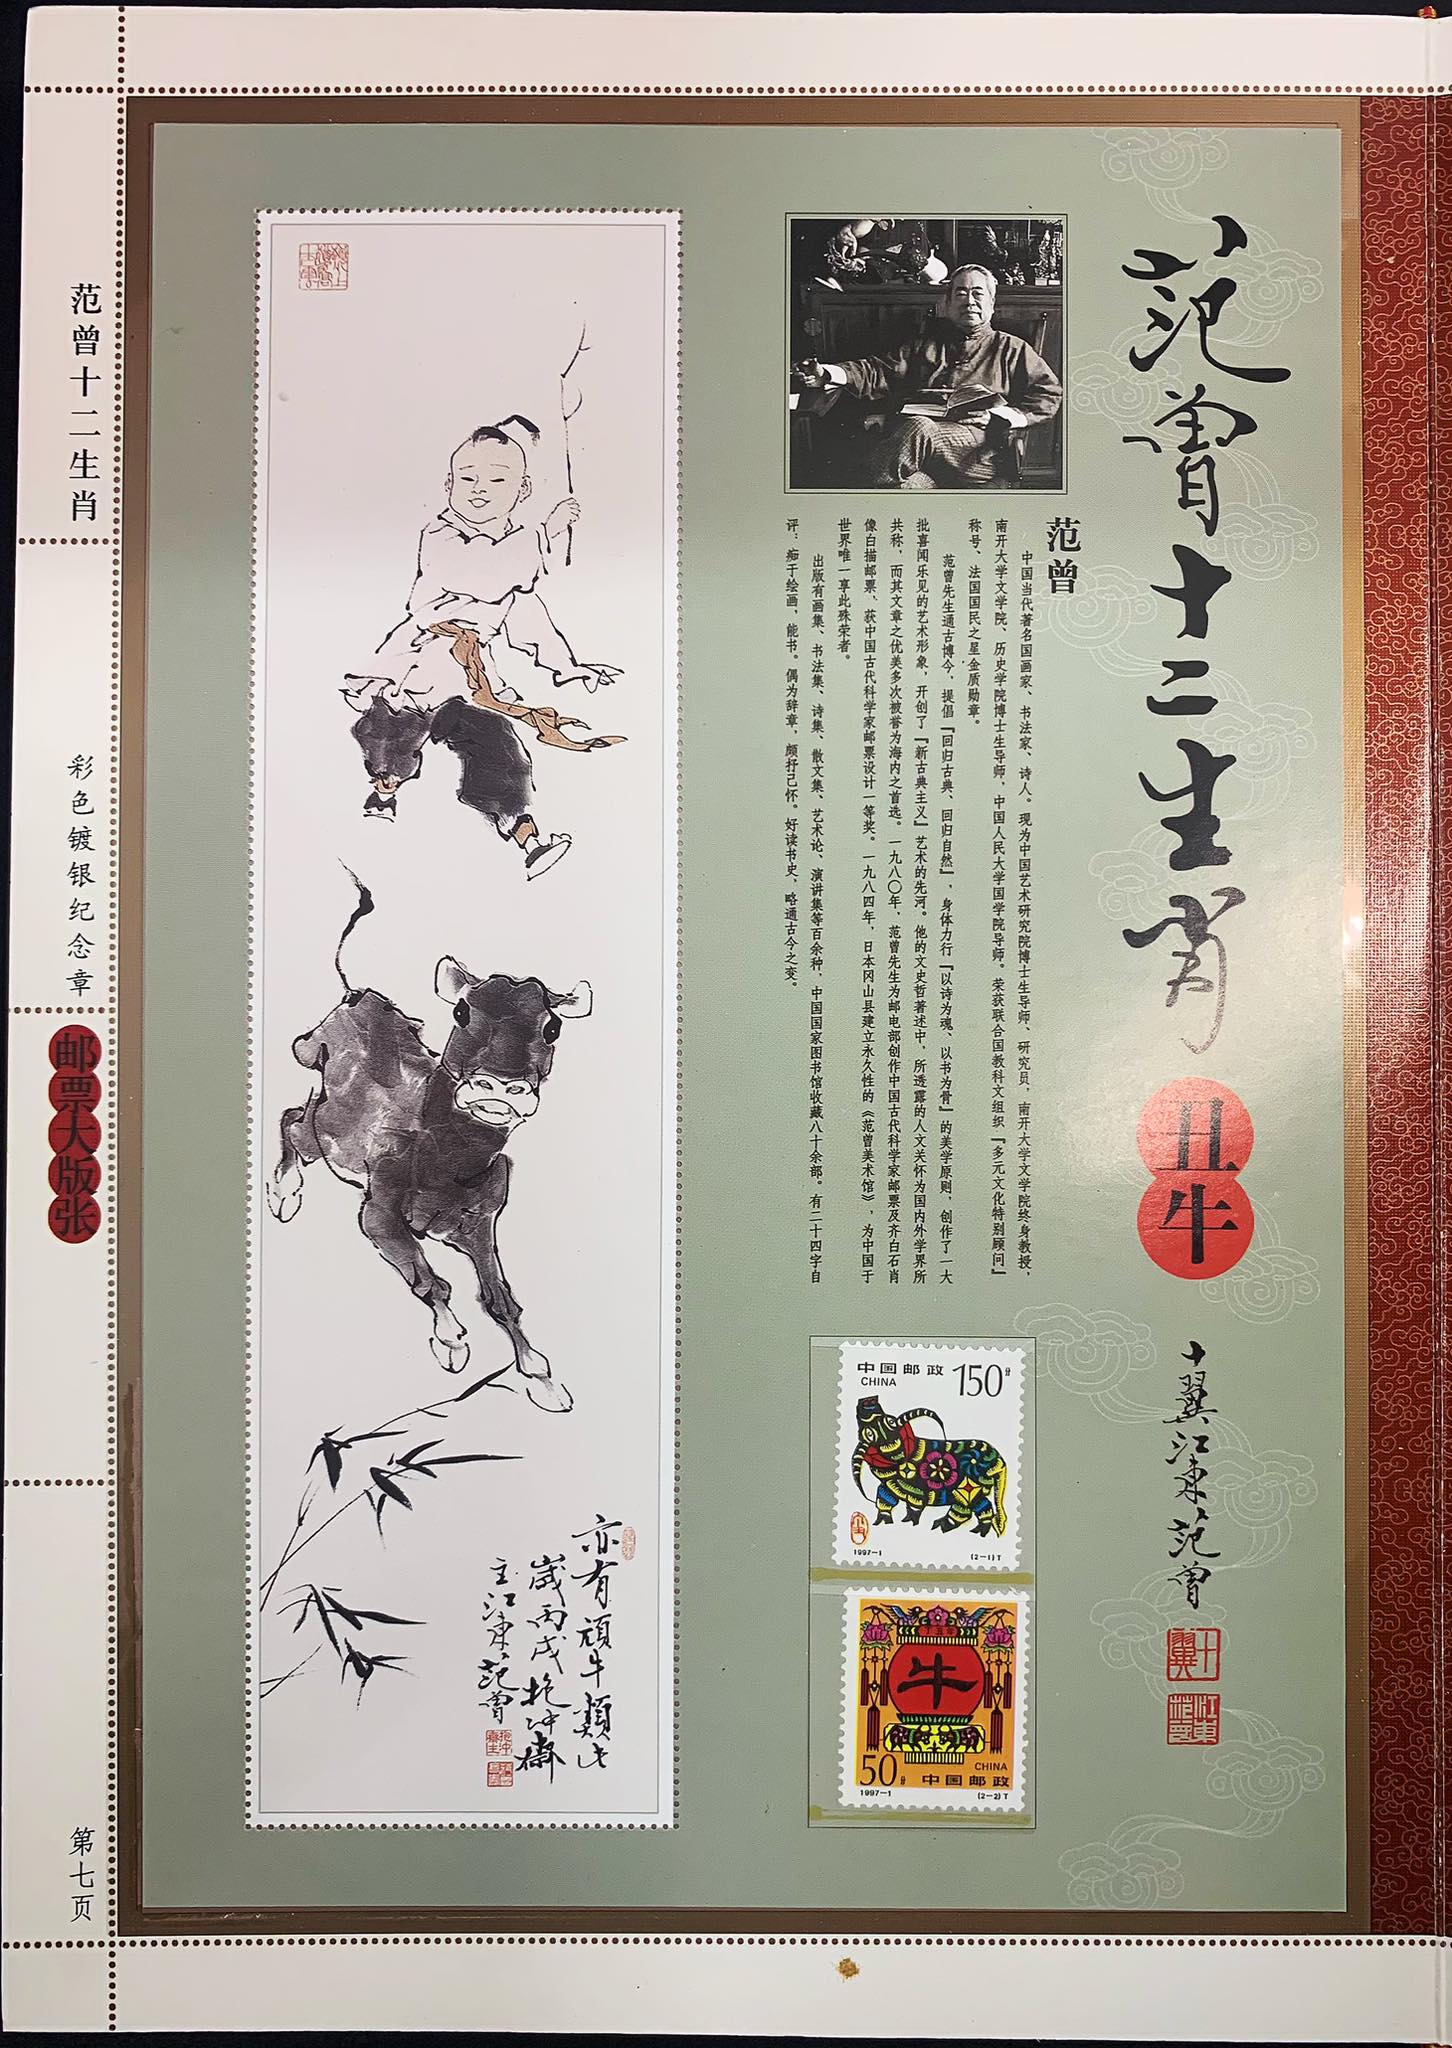 范曾十二生肖
丑牛
十翼江东范曾
十翼
江東范曾
范曾
中国当代著名国画家、书法家、诗人。现为中国艺术研究院博士生导师、研究员，南开大学文学院终身教授，
南开大学文学院、历史学院博士生导师，中国人民大学国学院导师。荣获联合国教科文组织『多元文化特别顾问』
称号、法国国民之星金质勋章。
范曾先生通古博今，提倡『回归古典、回归自然』，身体力行『以诗为魂、以书为骨』的美学原则，创作了一大
批喜闻乐见的艺术形象，开创了『新古典主义』艺术的先河。他的文史哲著述中，所透露的人文关怀为国内外学界所
共称，而其文章之优美多次被誉为海内之首选。一九八〇年，范曾先生为邮电部创作中国古代科学家邮票及齐白石肖
像白描邮票，获中国古代科学家邮票设计一等奖。一九八四年，日本冈山县建立永久性的《范曾美术馆》，为中国于
世界唯一享此殊荣者。
出版有画集、书法集、诗集、散文集、艺术论、演讲集等百余种，中国国家图书馆收藏八十余部。有二十四字自
评：痴于绘画，能书。偶为辞章，颇抒己怀。好读书史，略通古今之变。
中国邮政 150分
CHINA
1997-1 (2-1)T
牛
CHINA
50分 中国邮政
1997-1 (2-2)T
亦有頑牛類此
歲丙戌抱沖齋
主江東范曾
范曾十二生肖
彩色镀银纪念章
邮票大版张
第七页